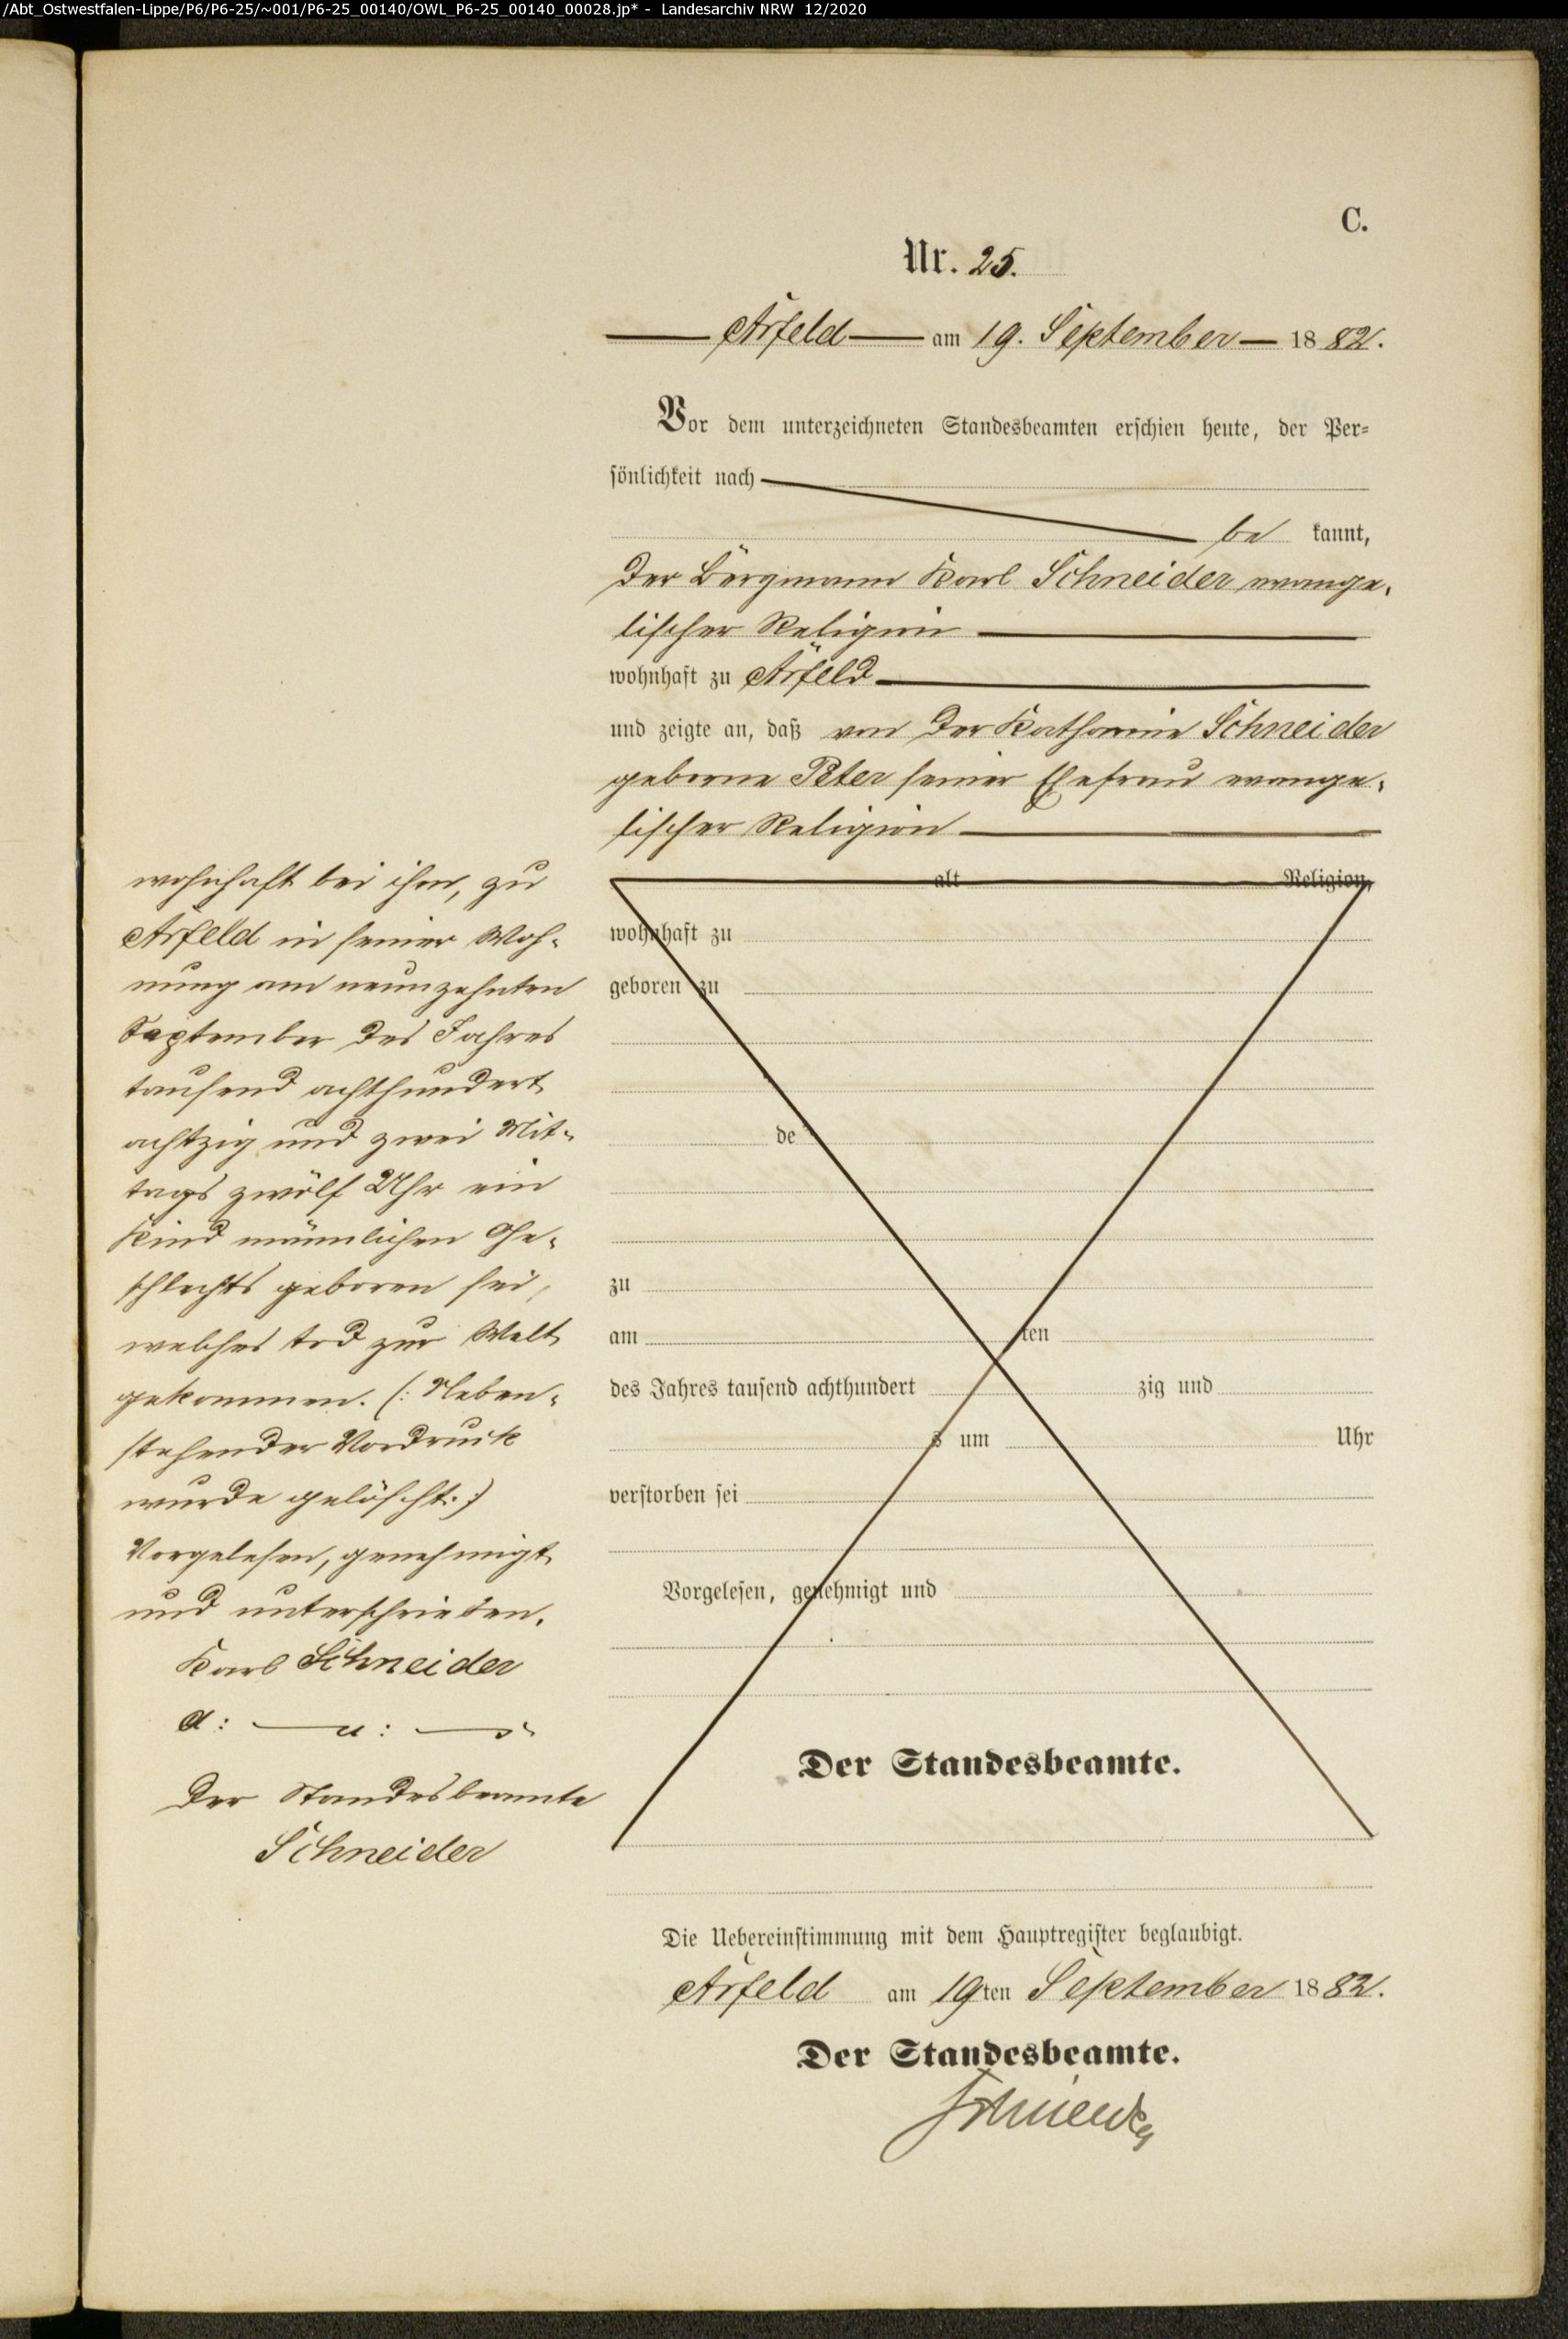 /Abt_Ostwestfalen-Lippe/P6/P6-25/~001/P6-25_00140/OWL_P6-25_00140_00028.jp* - Landesarchiv NRW 12/2020
C.
Nr. 25.
Arfeld am 19. September 1882.
Vor dem unterzeichneten Standesbeamten erschien heute, der Per=
sönlichkeit nach
be kannt,
der Bergmann Karl Schneider evange-
lischer Religion
wohnhaft zu Arfeld
und zeigte an, daß von der Katharine Schneider
geborne Peter seiner Ehefrau evange-
lischer Religion
alt Religion,
wohnhaft zu
geboren zu
de
zu
am ten
des Jahres tausend achthundert zig und
s um Uhr
verstorben sei
Vorgelesen, genehmigt und
Der Standesbeamte.
wohnhaft bei ihm, zu
Arfeld in seiner Woh-
nung am neunzehnten
September des Jahres
tausend achthundert
achtzig und zwei Mit-
tags zwölf Uhr ein
Kind männlichen Ge-
schlechts geboren sei,
welches tod zur Welt
gekommen. (: Neben-
stehender Vordruck
wurde gelöscht :)
Vorgelesen, genehmigt
und unterschrieben.
Karl Schneider
a: u: s.
Der Standesbeamte
Schneider
Die Uebereinstimmung mit dem Hauptregister beglaubigt.
Arfeld am 19ten September 1882.
Der Standesbeamte.
Schneider